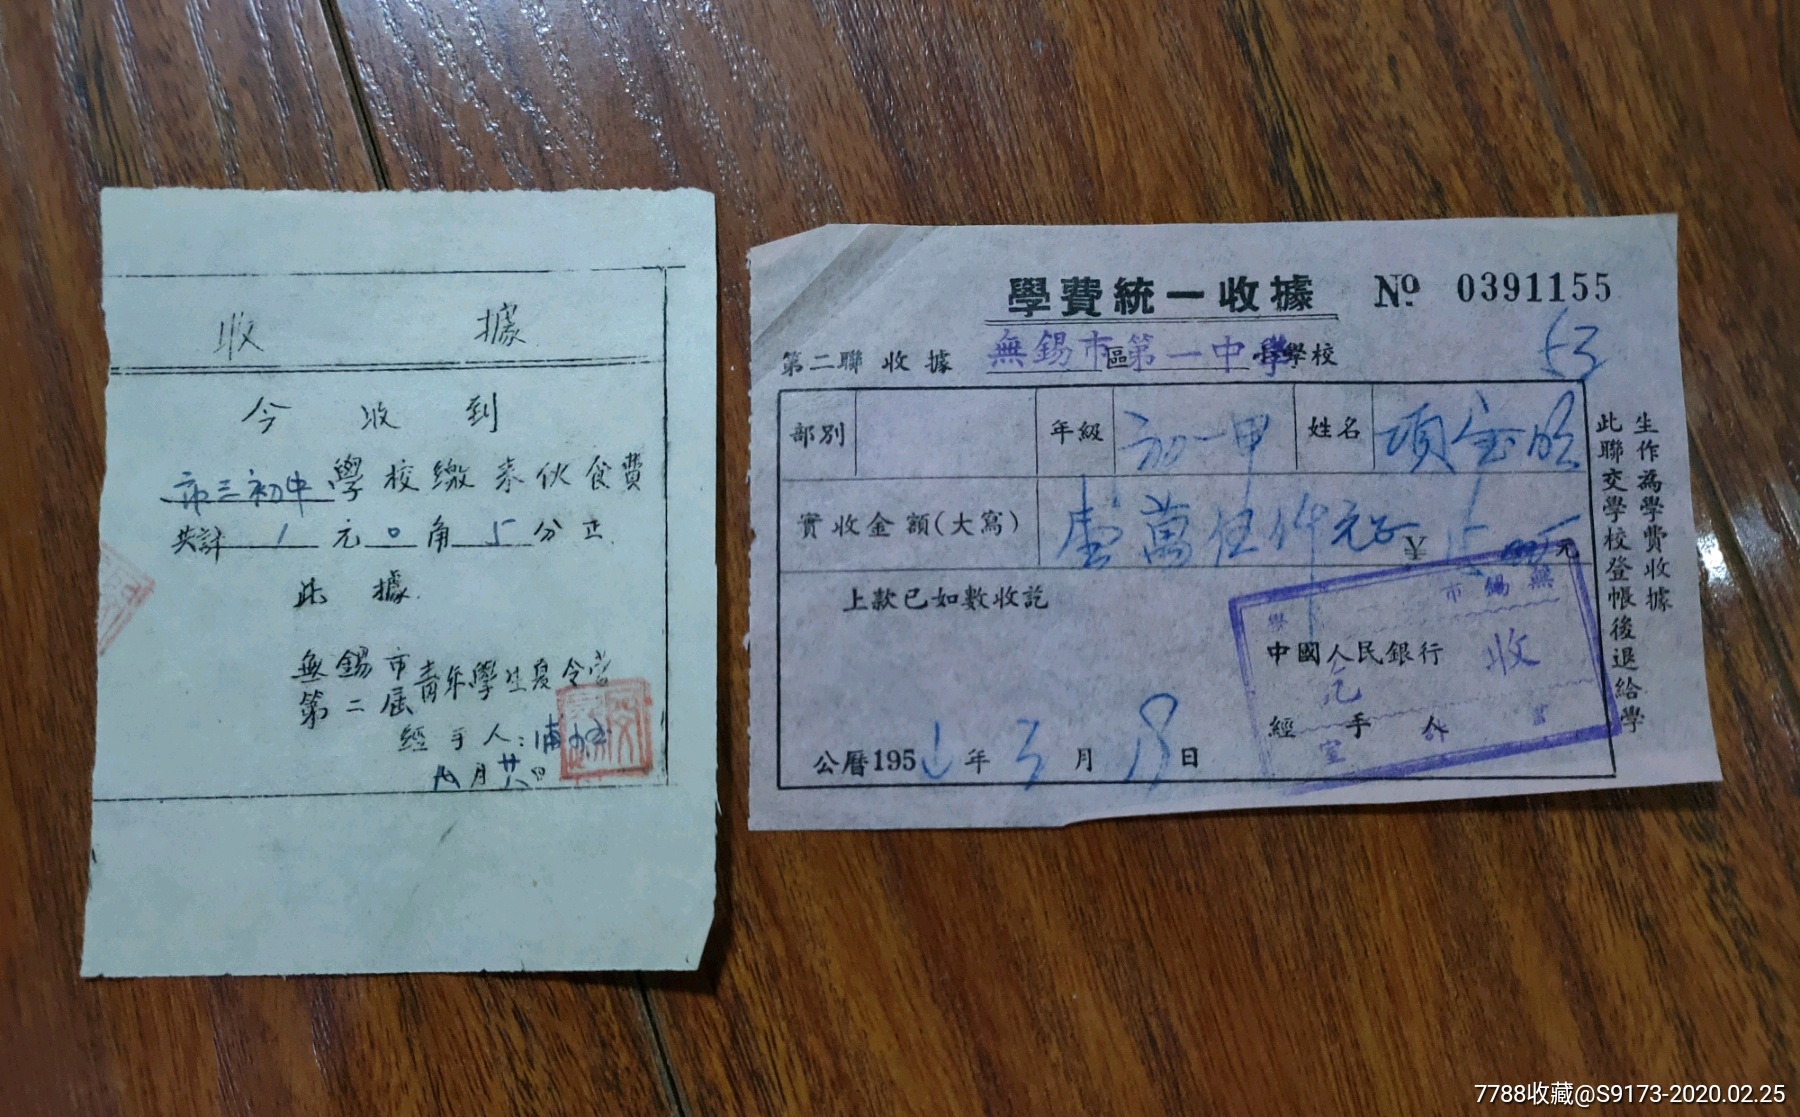 收據
今收到
市三初中學校繳來伙食費
共計 1 元 0 角 5 分正
此據
無錫市
第二屆
青年學生夏令营
經手人：
八月廿八日
學費統一收據 Nº 0391155
53
第二聯 收據 無錫市區第一中學學校
部別 年級 初一甲 姓名 項
實收金額(大寫) 壹萬伍仟元
上款已如數收訖
無錫市
中國人民銀行
收
訖
經手人
公曆195 年 3 月 日
此聯交學校登帳後退給學
生作為學費收據
7788收藏@S9173-2020.02.25